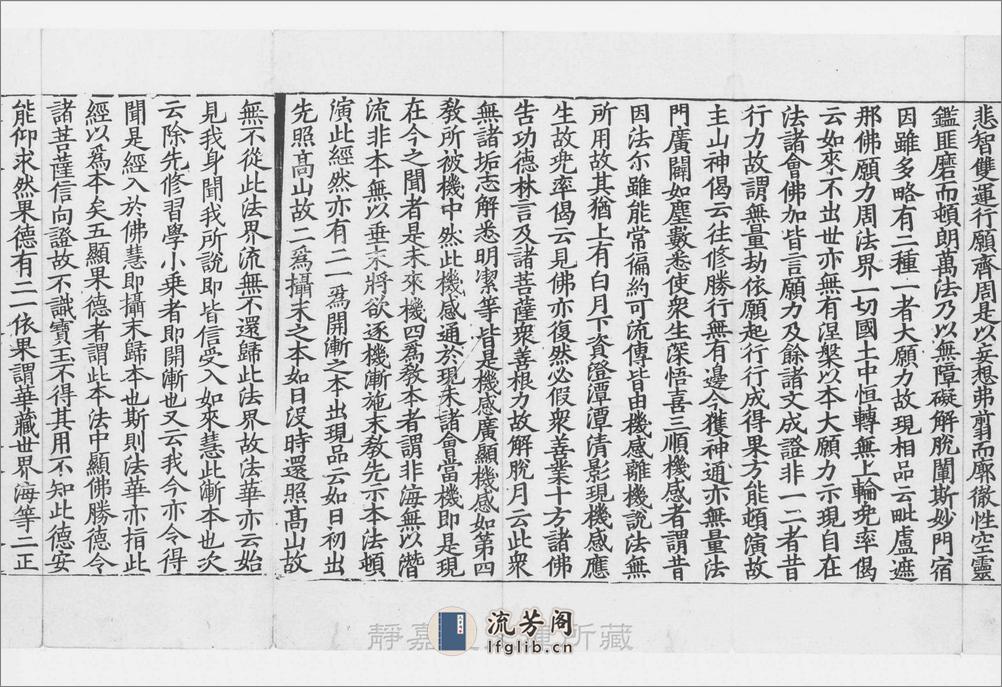 悲智雙運行願齊周是以妄想弗翦而廓徹性空靈
鑑匪磨而頓朗萬法乃以無障礙解脫闡斯妙門宿
因雖多略有二種一者大願力故現相品云毗盧遮
那佛願力周法界一切國土中恒轉無上輪兠率偈
云如來不出世亦無有涅槃以本大願力示現自在
法諸會佛加皆言願力及餘諸文成證非一二者昔
行力故謂無量劫依願起行行成得果方能頓演故
主山神偈云往修勝行無有邊今獲神通亦無量法
門廣闢如塵數悉使衆生深悟喜三順機感者謂昔
因法尒雖能常徧約可流傳皆由機感離機說法無
所用故其猶上有白月下資澄潭潭清影現機感應
生故兠率偈云見佛亦復然必假衆善業十方諸佛
告功德林言及諸菩薩衆善根力故解脫月云此衆
無諸垢志解悉明潔等皆是機感廣顯機感如第四
敎所被機中然此機感通於現未諸會當機即是現
在今之聞者是未來機四爲敎本者謂非海無以潛
流非本無以垂末將欲逐機漸施末敎先示本法頓
演此經然亦有二一爲開漸之本出現品云如日初出
先照髙山故二爲攝末之本如日沒時還照髙山故
無不從此法界流無不還歸此法界故法華亦云始
見我身聞我所說即皆信受入如來慧此漸本也次
云除先修習學小乗者即開漸也又云我今亦令得
聞是經入於佛慧即攝末歸本也斯則法華亦指此
經以爲本矣五顯果德者謂此本法中顯佛勝德令
諸菩薩信向證故不識寶玉不得其用不知此德安
能仰求然果德有二一依果謂華藏世界海等二正
靜嘉堂文庫所藏
流芳阁
lfglib.cn